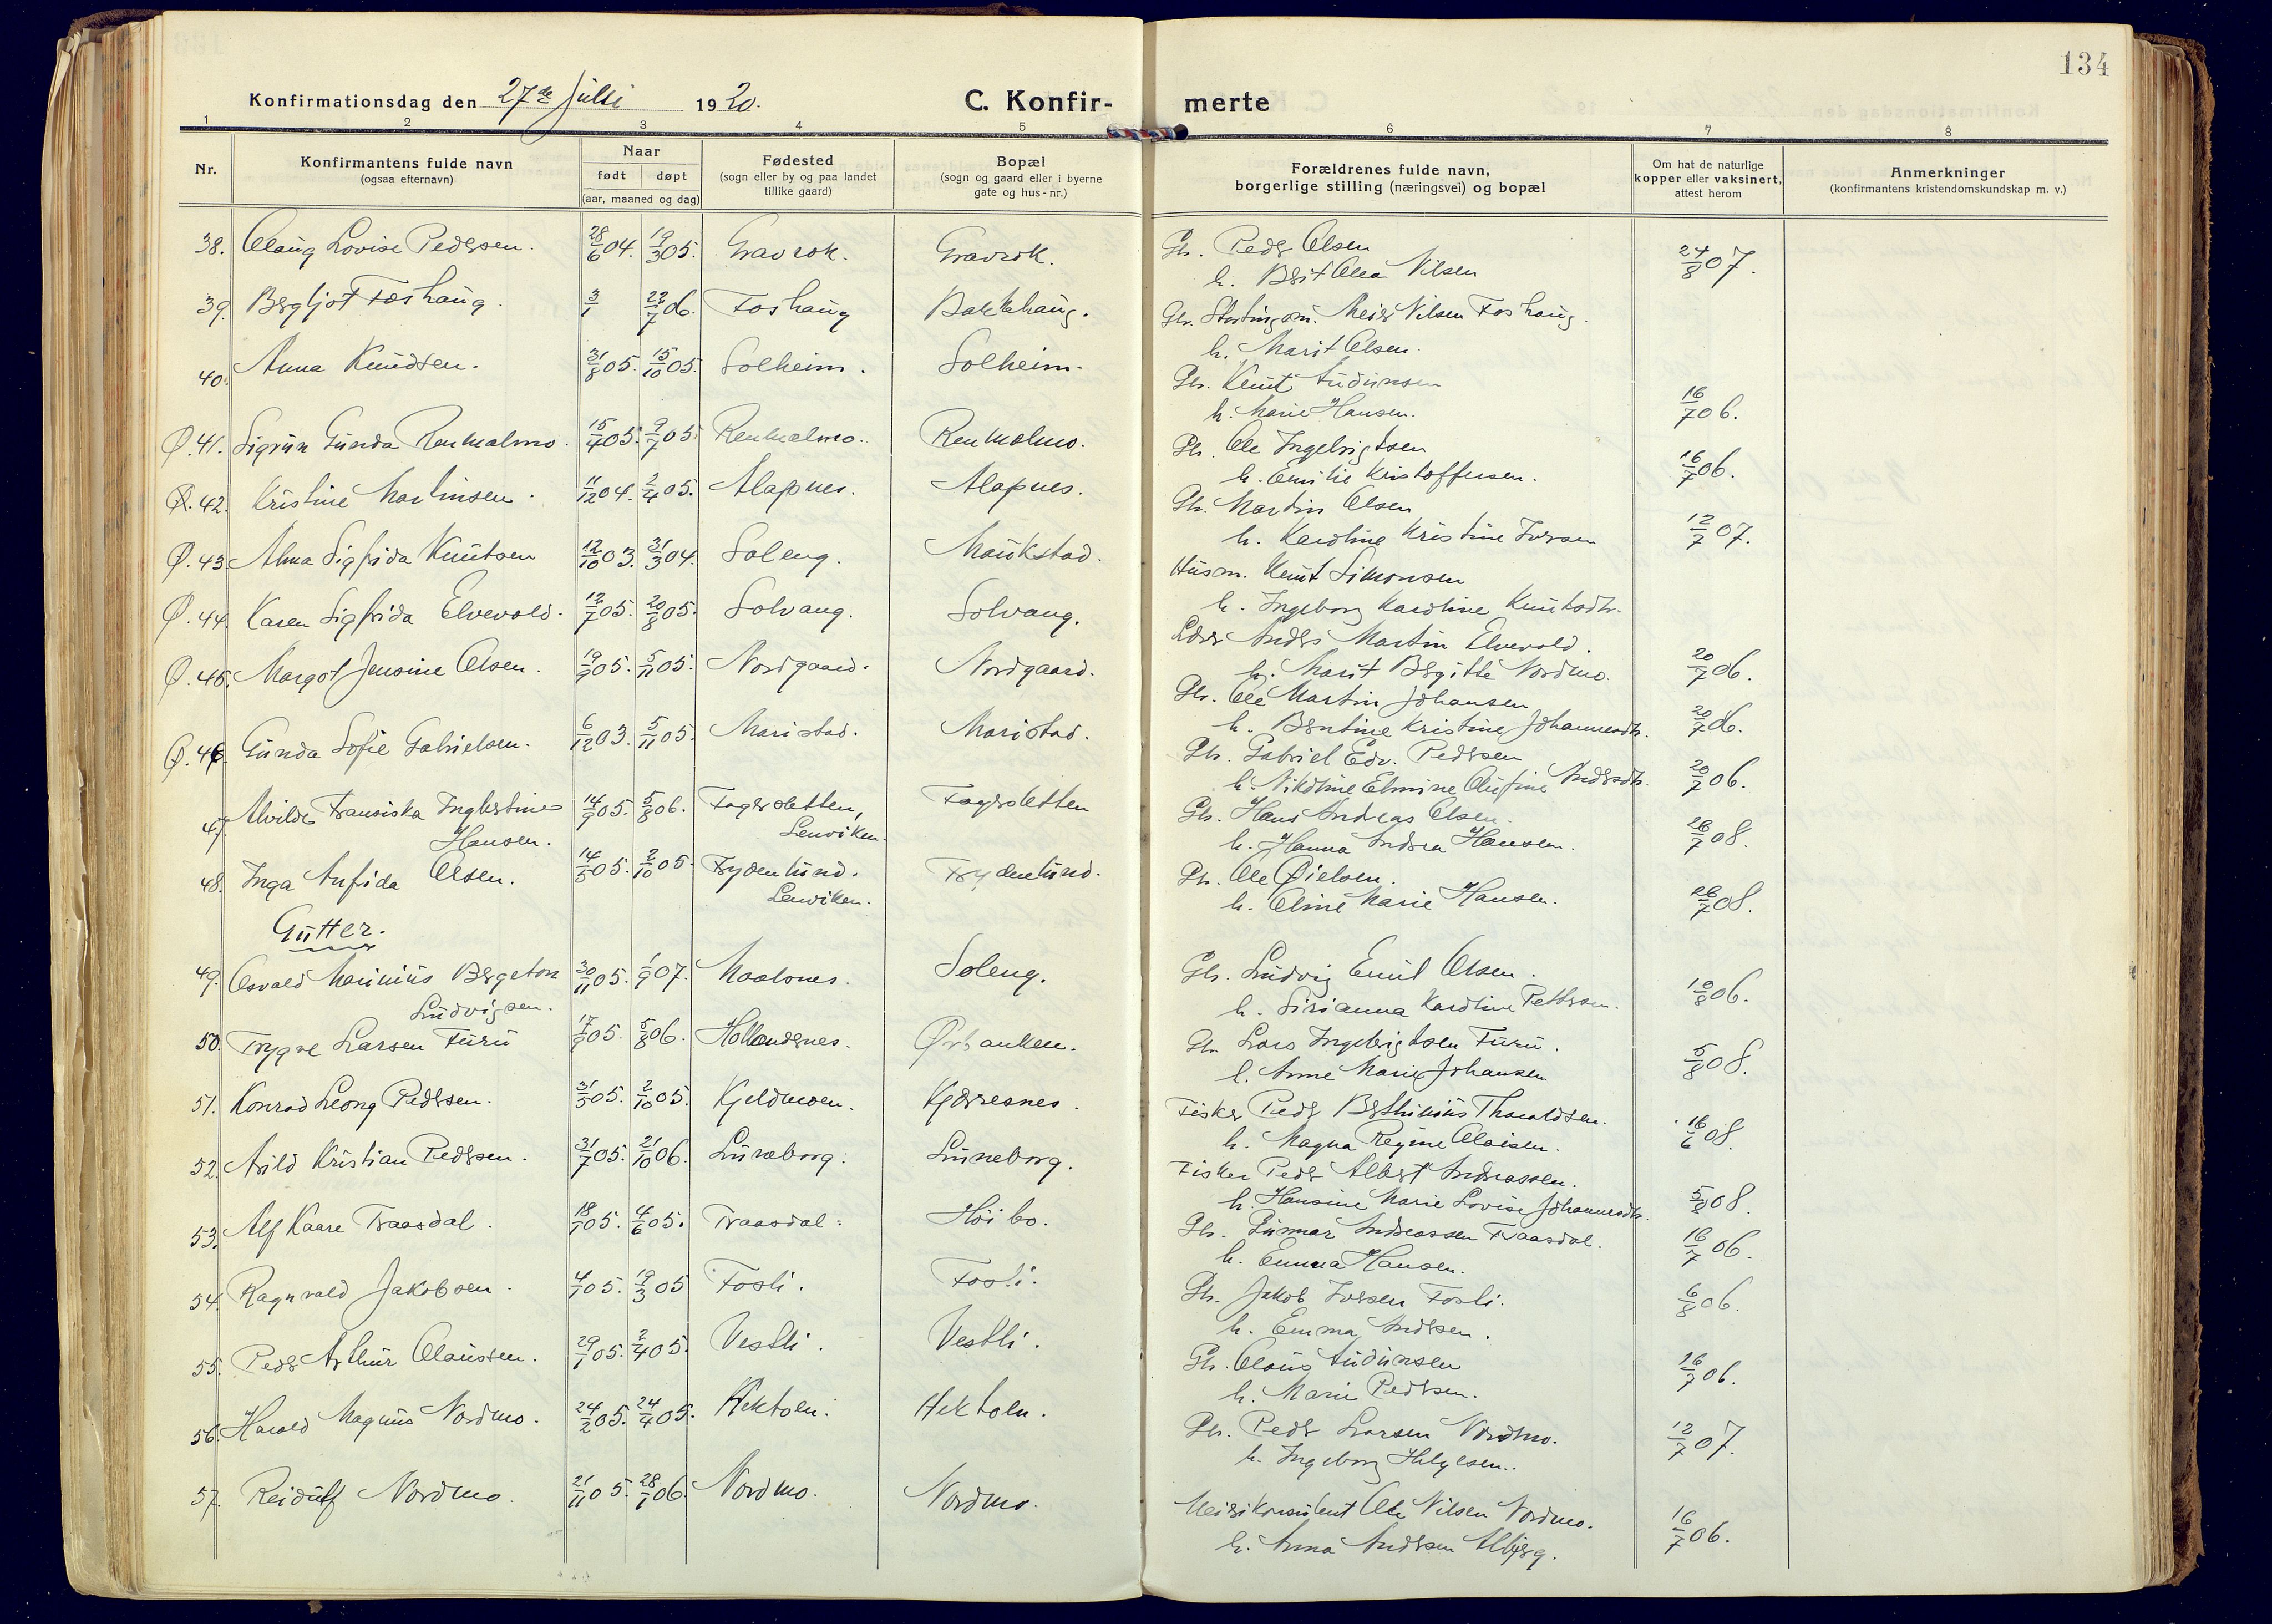 134
Konfirmationsdag den 27de Juli 1920.
C. Konfirmerte
1 2 3 4 5 6 7 8
Nr.
Konfirmantens fulde navn
(ogsaa efternavn)
Naar
født døpt
(aar, maaned og dag)
Fødested
(sogn eller by og paa landet
tillike gaard)
Bopæl
(sogn og gaard eller i byerne
gate og hus-nr.)
Forældrenes fulde navn,
borgerlige stilling (næringsvei) og bopæl
Om hat de naturlige
kopper eller vaksinert,
attest herom
Anmerkninger
(konfirmantens kristendomskundskap m. v.)
38. Olaug Lovise Pedersen. 28/6 04. 19/3 05. Gravrok. Gravrok. Gbr. Peder Olsen 24/8 07.
h. Berit Olea Nilsen
39. Bergljot Foshaug. 3/1 22/7 06. Foshaug Bakkehaug. Gbr. Stortingsm. Meier Nilsen Foshaug.
h. Marit Olsen.
40. Anna Knudsen. 31/8 05. 15/10 05. Solheim. Solheim. Gbr. Knut Audunsen 16/7 06.
h. Marie Hansen.
Ø. 41. Sigrun Gunda Renmælmo. 15/4 05. 9/7 05. Renmælmo. Renmælmo. Gbr. Ole Ingebrigtsen 16/7 06.
h. Emilie Kristoffersen.
Ø. 42. Kristine Martinsen. 11/12 04. 2/4 05. Alapnes. Alapnes. Gbr. Martin Olsen 12/7 07.
h. Karoline Kristine Iversen
Ø. 43. Alma Sigfrida Knutsen 12/10 03. 31/3 04. Soleng. Maukstad. Husm. Knut Simonsen
h. Ingeborg Karoline Knutsdtr.
Ø. 44. Karen Sigfrida Elvevold. 12/7 05. 20/8 05. Solvang. Solvang. Lærer Anders Martin Elvevold. 20/7 06.
h. Marit Bergitte Nordmo.
Ø. 45. Margot Jensine Olsen. 19/9 05. 5/11 05. Nordgaard. Nordgaard. Gbr. Ole Martin Johansen 20/7 06.
h. Bentine Kristine Johannesdtr.
Ø. 46. Gunda Sofie Gabrielsen. 6/12 03. 5/11 05. Maristad. Maristad. Gbr. Gabriel Edv. Pedersen 20/7 06.
h. Nikoline Elmine Olufine Andersdtr.
47. Alvilde Fransiska Ingbertine 14/9 05. 5/8 06. Fagersletten, Fagersletten Gbr. Hans Andreas Olsen. 26/7 08.
Hansen. Lenviken. h. Hanna Andrea Hansen.
48. Inga Anfida Olsen. 14/5 05. 2/10 05. Frydenlund. Frydenlund. Gbr. Ole Øielsen. 26/7 08.
Lenviken. h. Oline Marie Hansen.
Gutter.
49. Osvald Marinius Bergeton 30/11 05. 1/9 07. Moalsnes. Soleng. Gbr. Ludvig Emil Olsen. 10/8 06.
Ludvigsen. h. Sirianna Karoline Pettersen.
50. Trygve Larsen Furu 17/9 05. 5/8 06. Hollendernes. Ørbanken. Gbr. Lars Ingebrigtsen Furu. 5/8 08.
h. Anne Marie Johansen
51. Konrad Leong Pedersen. 31/5 05. 2/10 05. Kjeldmoen. Kjerresnes. Fisker Peder Berthinius Thoraldsen. 16/6 08.
h. Magna Regine Olaisen.
52. Arild Kristian Pedersen. 31/7 05. 21/10 06. Luneborg. Luneborg. Fisker Peder Albert Andreassen. 5/8 08.
h. Hansine Marie Lovise Johannesdtr.
53. Alf Kaare Traasdal. 18/1 05. 4/6 05. Traasdal. Høibo. Gbr. Gunnar Andreassen Traasdal. 16/7 06.
h. Emma Hansen.
54. Ragnvald Jakobsen. 4/1 05. 19/3 05 Fosli. Fosli. Gbr. Jakob Iversen Fosli. 6/8 06.
h. Emma Andersen.
55. Peder Arthur Olaussen. 29/1 05. 2/4 05. Vestli. Vestli. Gbr. Olaus Audunsen 16/7 06.
h. Marie Pedersen.
56. Harald Magnus Nordmo. 24/2 05. 24/4 05. Hektoln. Hektoln. Gbr. Peder Larsen Nordmo. 12/7 07.
h. Ingeborg Helgesen.
57. Reidulf Nordmo. 21/11 05. 28/1 06. Nordmo. Nordmo. Meierikonsulent Ole Nilsen Nordmo. 16/7 06.
h. Anna Andersen Albjerg.